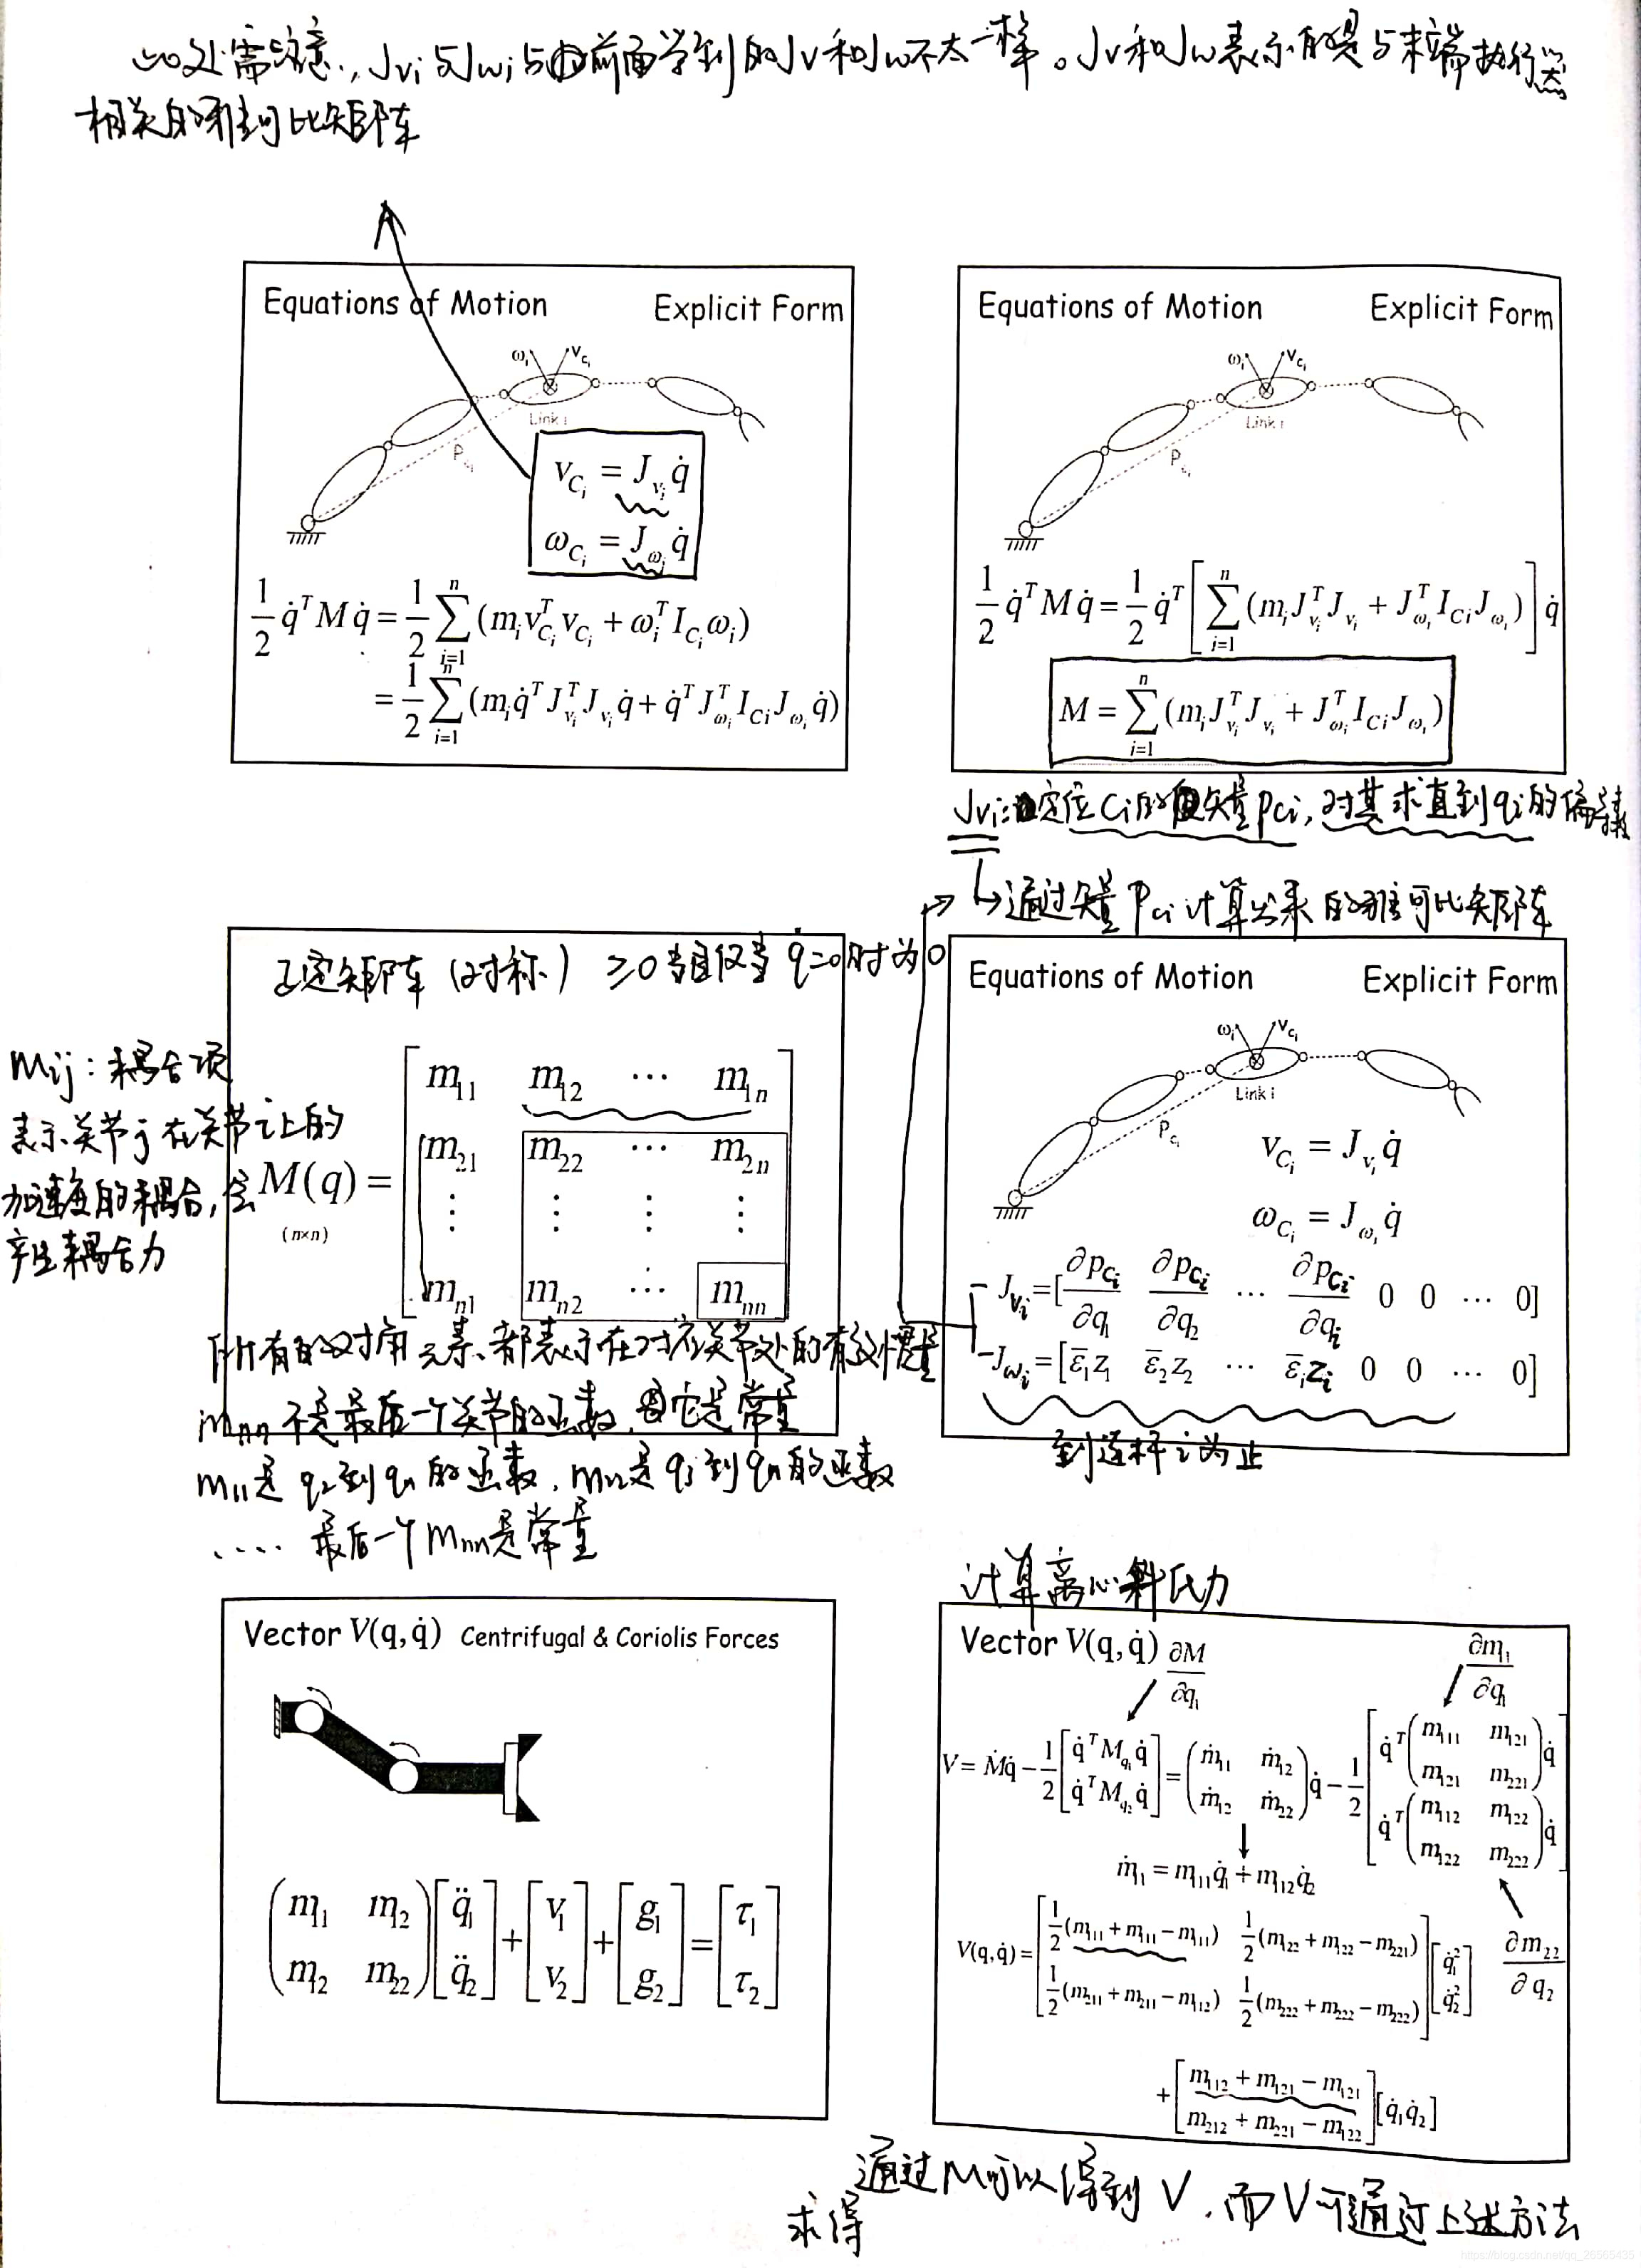 此处需注意,Jvi与Jwi与前面学到的Jv和Jw不太一样。Jv和Jw表示的是与末端执行器
相关的雅可比矩阵
Equations of Motion Explicit Form
ωᵢ v_Cᵢ
Link i
P_Cᵢ
v_Cᵢ = J_vᵢ q̇
ω_Cᵢ = J_ωᵢ q̇
1/2 q̇ᵀ M q̇ = 1/2 ∑_{i=1}^{n} (mᵢ v_Cᵢᵀ v_Cᵢ + ωᵢᵀ I_Cᵢ ωᵢ)
= 1/2 ∑_{i=1}^{n} (mᵢ q̇ᵀ J_vᵢᵀ J_vᵢ q̇ + q̇ᵀ J_ωᵢᵀ I_Cᵢ J_ωᵢ q̇)
Equations of Motion Explicit Form
ωᵢ v_Cᵢ
Link i
P_Cᵢ
1/2 q̇ᵀ M q̇ = 1/2 q̇ᵀ [ ∑_{i=1}^{n} (mᵢ J_vᵢᵀ J_vᵢ + J_ωᵢᵀ I_Cᵢ J_ωᵢ) ] q̇
M = ∑_{i=1}^{n} (mᵢ J_vᵢᵀ J_vᵢ + J_ωᵢᵀ I_Cᵢ J_ωᵢ)
Jvi:定位Ci的矢量pci,对其求直到qi的偏导数
↳通过矢量Pci计算出来的雅可比矩阵
正定矩阵(对称) ≥0 当且仅当 q̇=0时为0
mij:耦合项
表示关节j在关节i上的
加速度的耦合,会
产生耦合力
M(q) =
(n×n)
m₁₁ m₁₂ ⋯ m₁ₙ
m₂₁ m₂₂ ⋯ m₂ₙ
⋮ ⋮ ⋮ ⋮
mₙ₁ mₙ₂ ⋯ mₙₙ
所有的对角元素都表示在对应关节处的有效惯量
mnn不是最后一个关节的函数,它是常量
m11是q2到qn的函数,m22是q3到qn的函数
..... 最后一个mnn是常量
Equations of Motion Explicit Form
ωᵢ v_Cᵢ
Link i
P_Cᵢ
v_Cᵢ = J_vᵢ q̇
ω_Cᵢ = J_ωᵢ q̇
J_vᵢ = [∂p_Cᵢ/∂q₁ ∂p_Cᵢ/∂q₂ ⋯ ∂p_Cᵢ/∂qᵢ 0 0 ⋯ 0]
J_ωᵢ = [ε̄₁z₁ ε̄₂z₂ ⋯ ε̄ᵢzᵢ 0 0 ⋯ 0]
到连杆i为止
Vector V(q,q̇) Centrifugal & Coriolis Forces
(m₁₁ m₁₂; m₁₂ m₂₂) [q̈₁; q̈₂] + [v₁; v₂] + [g₁; g₂] = [τ₁; τ₂]
计算离心科氏力
Vector V(q,q̇) ∂M/∂q₁ ∂m₁₁/∂q₁
V = Ṁq̇ − 1/2 [q̇ᵀM_q₁q̇; q̇ᵀM_q₂q̇] = (ṁ₁₁ ṁ₁₂; ṁ₁₂ ṁ₂₂) q̇ − 1/2 [q̇ᵀ(m₁₁₁ m₁₂₁; m₁₂₁ m₂₂₁)q̇; q̇ᵀ(m₁₁₂ m₁₂₂; m₁₂₂ m₂₂₂)q̇]
ṁ₁₁ = m₁₁₁q̇₁ + m₁₁₂q̇₂
V(q,q̇) = [1/2(m₁₁₁ + m₁₁₁ − m₁₁₁) 1/2(m₁₂₂ + m₁₂₂ − m₂₂₁); 1/2(m₂₁₁ + m₂₁₁ − m₁₁₂) 1/2(m₂₂₂ + m₂₂₂ − m₂₂₂)] [q̇₁²; q̇₂²] ∂m₂₂/∂q₂
+ [m₁₁₂ + m₁₂₁ − m₁₂₁; m₂₁₂ + m₂₂₁ − m₁₂₂] [q̇₁q̇₂]
通过M可以得到V,而V可通过上述方法
求得
https://blog.csdn.net/qq_26565435